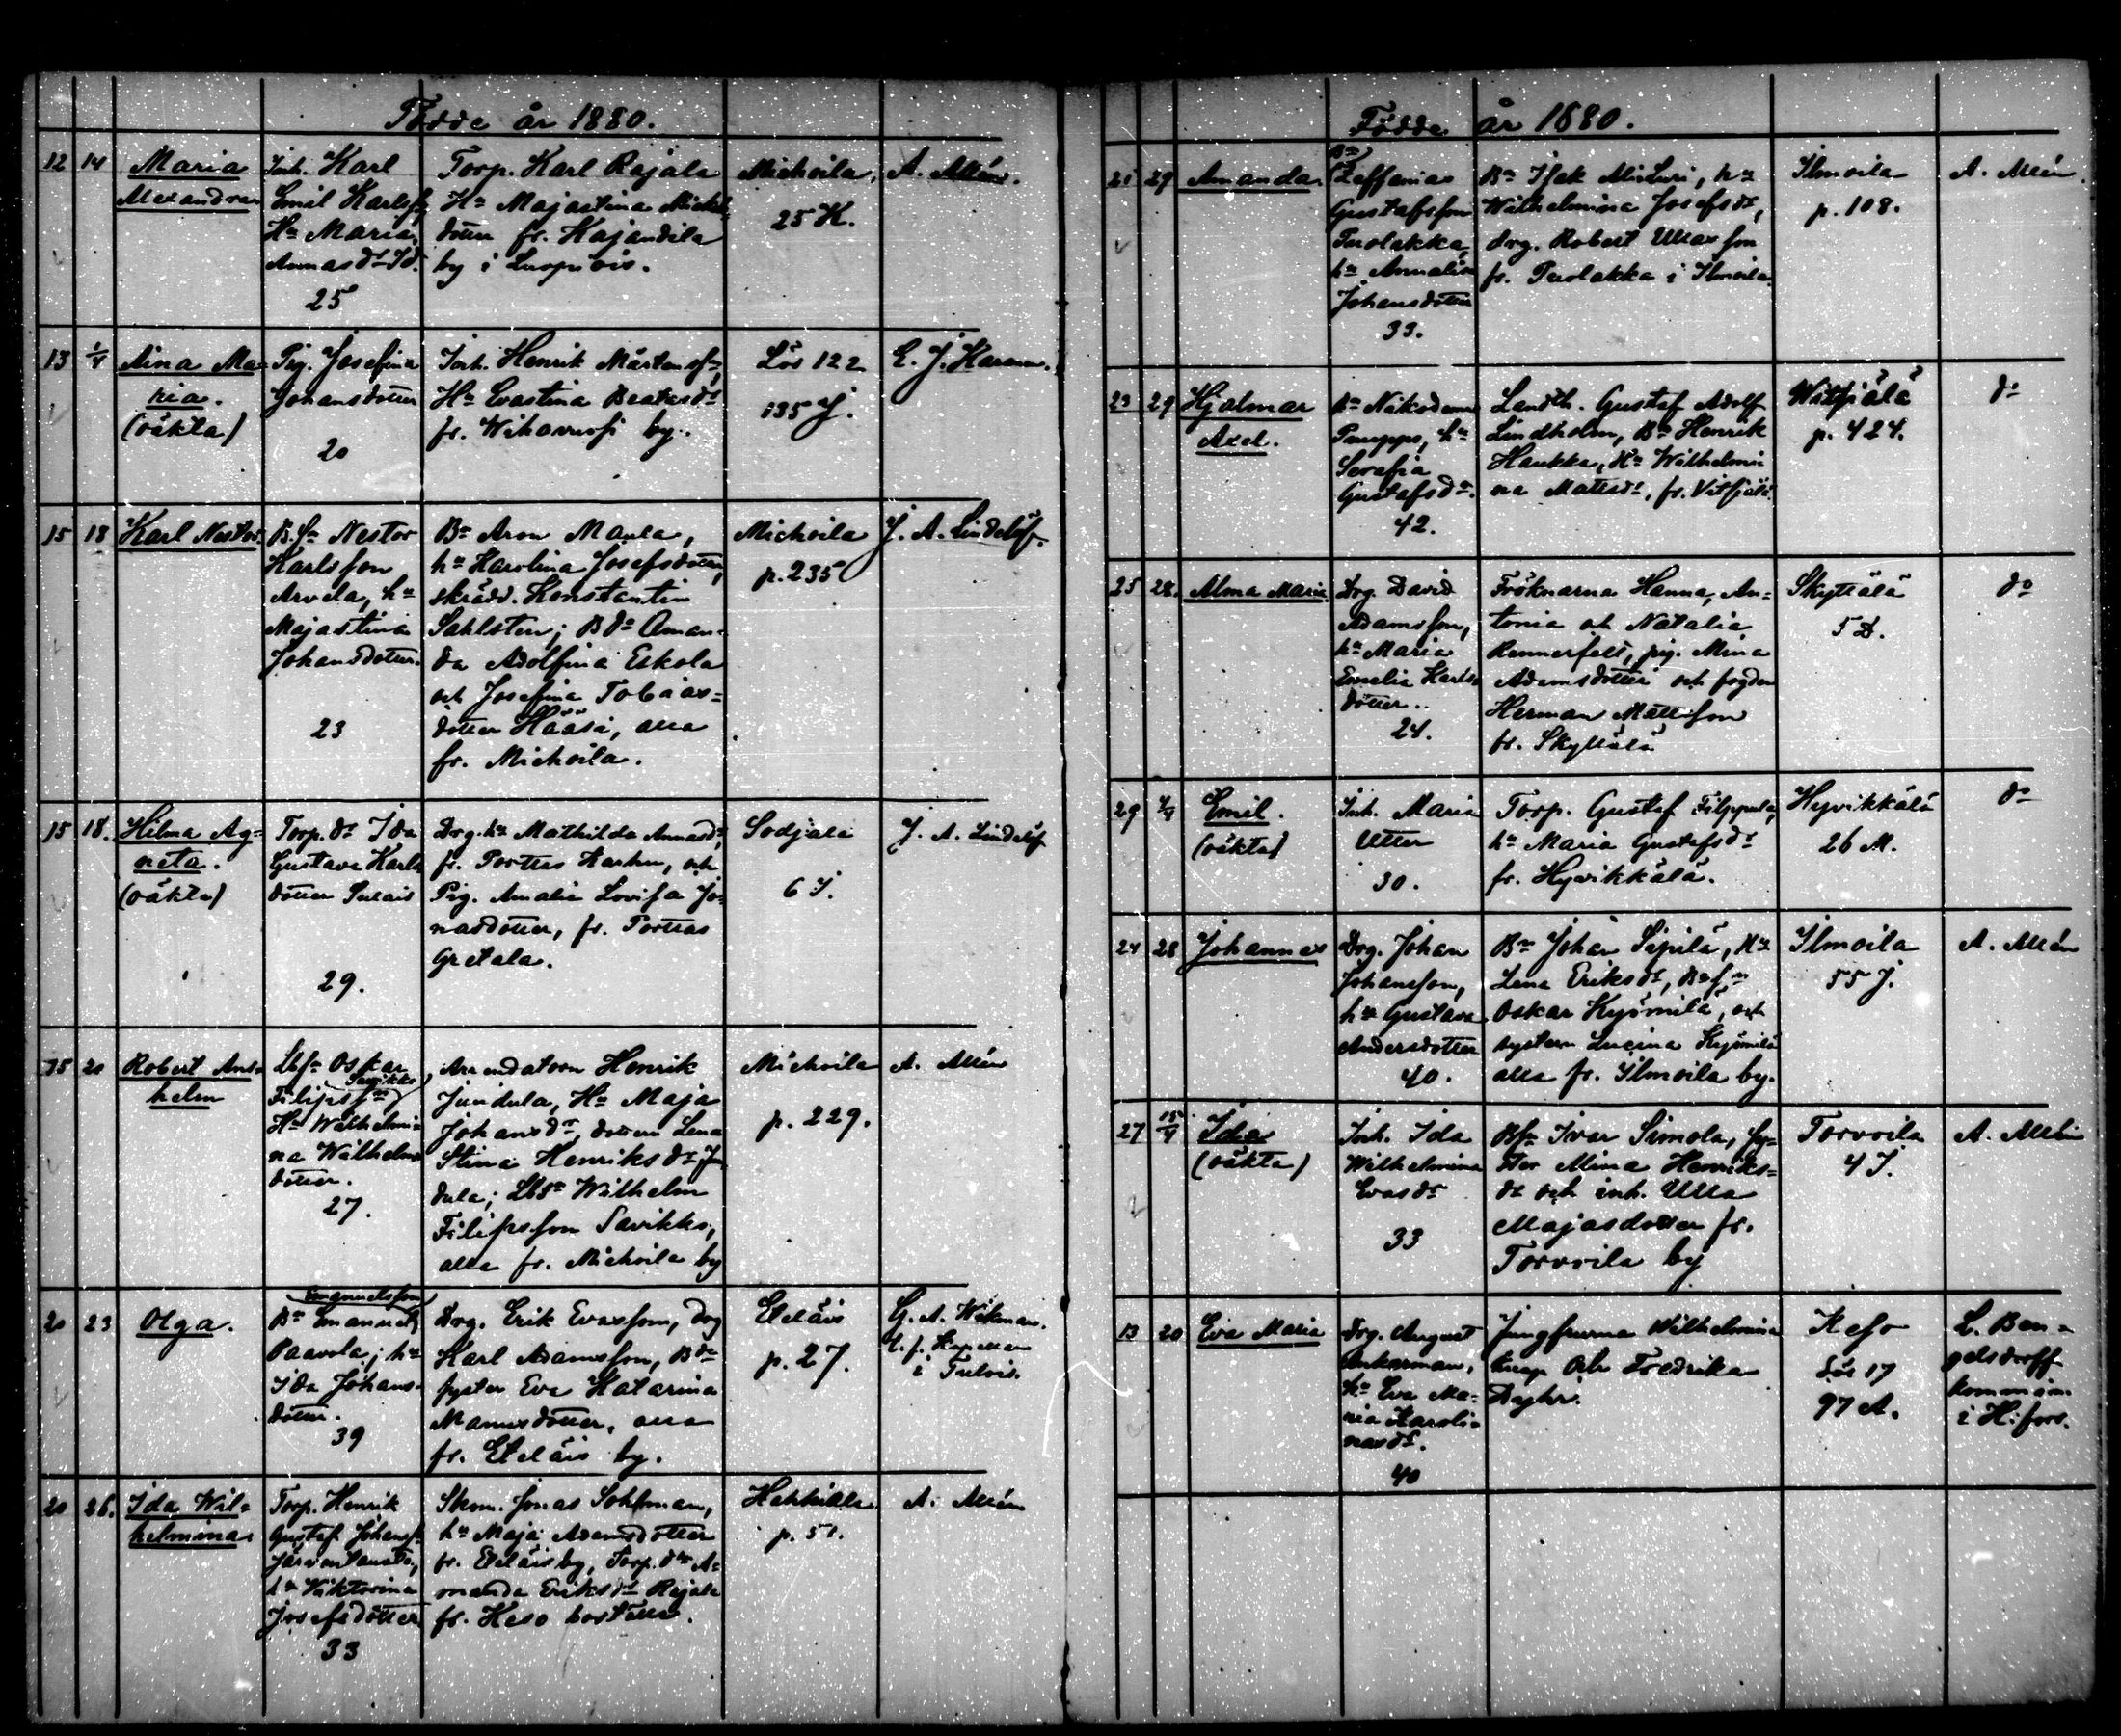 Födde år 1880.
12 14 Maria Alexandra
Inh. Karl
Emil Karlsf,
Hu Maria
Annasdr Id.
25
Torp. Karl Rajala
Hu Majastina Mickels
dotter fr. Kajandila
by i Luopiois.
Michoila,
25 K.
A. Allén.
13 1/4 Aina Ma=
ria.
(oäkta)
Pig. Josefina
Johansdotter
20
Inh. Henrik Mårtensfn,
Hu Evastina Beatasdr
fr. Wihavuosi by.
Lös 122
135 J.
E. J.
15 18 Karl Nestor
B.Sn Nestor
Karlsson
Arvela, hu
Majastina
Johansdotter.
23
Bn Aron Maula,
hu Karolina Josefsdotter,
skrädd. Konstantin
Sahlsten; Bdr Aman=
da Adolfina Eskola
och Josefina Tobias=
dotter Hääsi, alla
fr. Michoila.
Michoila
p. 235
J. A. Lindelöf.
15 18. Hilma Ag=
neta.
(oäkta)
Torp. dr Ida
Gustava Karls
dotter
29.
Drg. hu Mathilda Annasdr,
fr. Porttas karhu, och
Pig. Amalia Lovisa Jo=
nasdotter, fr. Porttas
Gretala.
Sodjala
6 I.
J. A. Lindelöf
15 20 Robert Ans=
helm
Lbfn Oskar
Filipsfn Savikko,
Hu Wilhelmi=
na Wilhelms
dotter.
27.
Arrendatorn Henrik
Junidula, Hu Maja
Johansdr, dottern Lena
Stina Henriksdr Juni
dula; Lbsn Wilhelm
Filipsson Savikko,
alla fr. Michoila by
Michoila
p. 229.
A. Allén
20 23 Olga.
Emanuelsson
Bn Emanuel
Paavola; hu
Ida Johans=
dotter.
39
Drg. Erik Evasson, drg
Karl Adamsson, Bds
syster Eva Katarina
Mannsdotter, alla
fr. Eteläis by.
Eteläis
p. 27.
G. A. Wikman.
t. f. Kapellan
i Tulois.
20 26. Ida Wil=
helmina
Torp. Henrik
Gustaf Johansf.
Järventausta,
hu Viktorina
Josefsdotter
33
Skom. Jonas Sohlman,
hu Maja Adamsdotter
fr. Eteläis by, Torp. dr A=
manda Eriksdr Rajala
fr. Keso boställe.
Hakkiala
p. 51.
A. Allén
Födde år 1880.
25 29 Amanda.
Bn
Zeffanias
Gustafsson
Puolakka,
hu Annalisa
Johansdotter
33.
Bn Isak Miskuri, hu
Wilhelmina Josefsdr,
drg. Robert Ullasson
fr. Puolakka i Ilmoila.
Ilmoila
p. 108.
A. Allén.
23 29 Hjalmar
Axel.
Bn Nikodemus
hu
Serafia
Gustafsdr.
42.
Landth. Gustaf Adolf
Lindholm, Bn Henrik
Haukka, Hu Wilhelmi
na Mattsdr, fr. Vitsiälä.
Witsiälä
p. 424.
do
25 28. Alma Maria.
Drg. David
Adamsson,
hu Maria
Emelia Karls=
dotter..
24.
Fröknarna Hanna, An=
tonia och Natalia
Rennerfelt, pig. Mina
Adamsdotter och fogden
Herman Mattsson
fr. Skyttälä
Skyttälä
5 D.
do
29 4/4 Emil.
(oäkta)
Inh. Maria
Utter
30.
Torp. Gustaf Filppula,
hu Maria Gustafsdr
fr. Hyvikkälä.
Hyvikkälä
26 M.
do
24 28 Johannes
Drg. Johan
Johansson,
hu Gustava
Andersdotter
40.
Bn Johan Sipilä, hu
Lena Eriksdr, Bsn
Oskar Kyömilä, och
systern Lucina Kyömilä
alla fr. Ilmoila by.
Ilmoila
55 J.
A. Allén
27 15/4 Ida
(oäkta)
Inh. Ida
Wilhelmina
Evasdr
33
Bsn Ivar Simola, sy=
ster Mina Henriks=
dr och inh. Ulla
Majasdotter fr.
Torvoila by
Torvoila
4 I.
A. Allén
13 20 Eva Maria
Drg. August
Ankarman,
hu Eva Ma=
ria Karoli=
nasdr.
40
Jungfrurna Wilhelmina
och Fredrika
Dyhr.
Keso
Lös 17
97 A.
L. Ben=
gelsdorff
komm.
i H:fors.